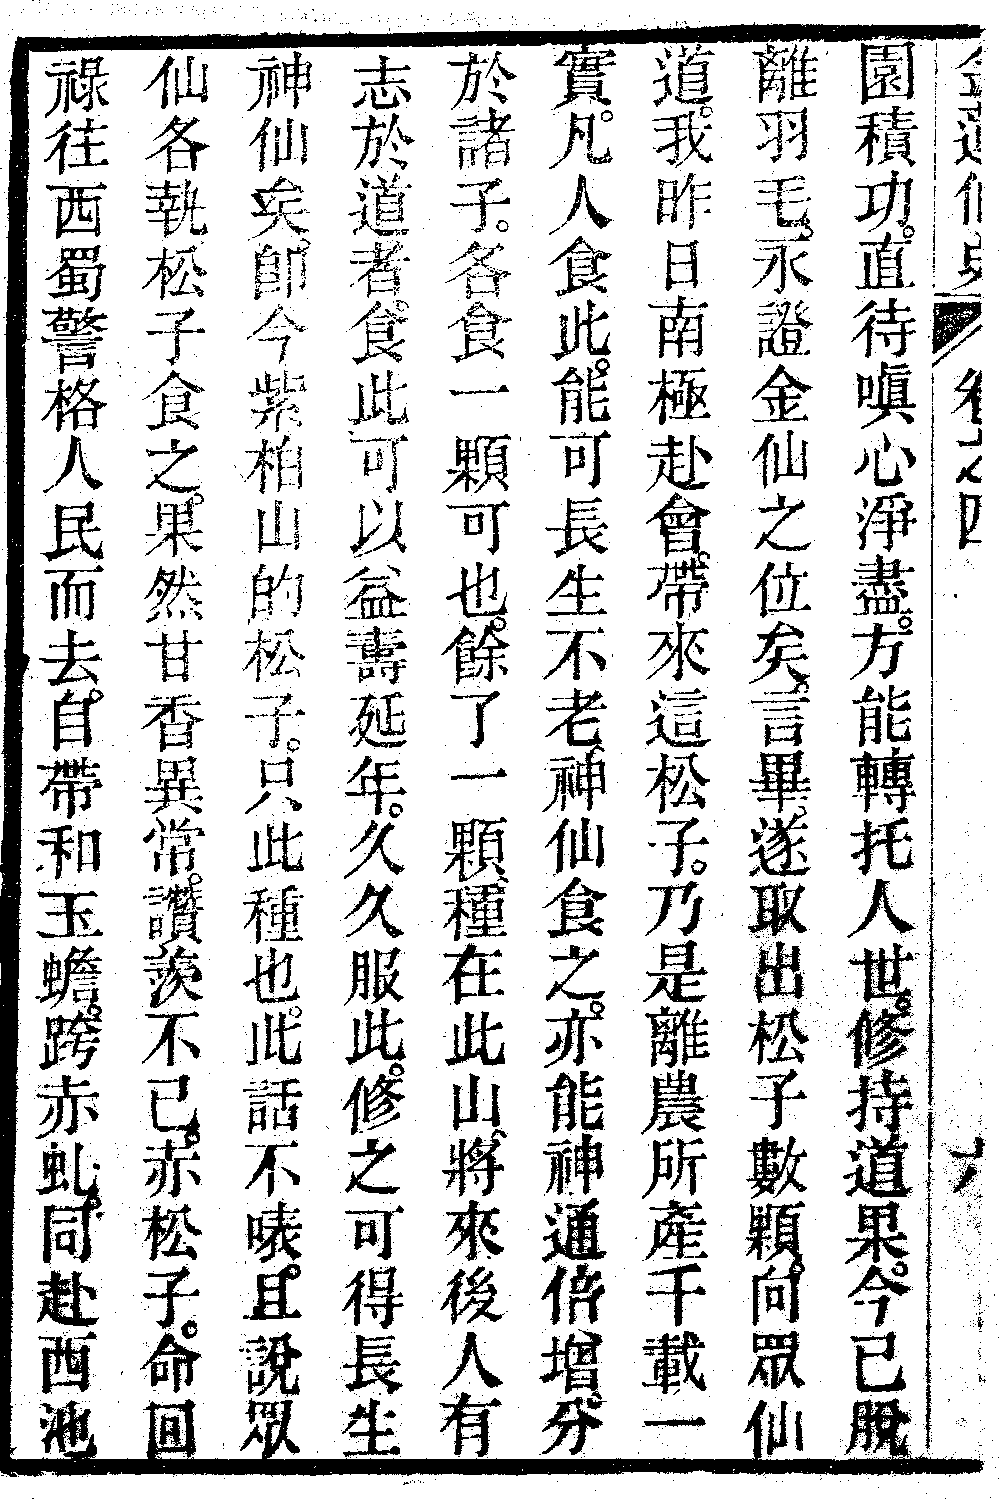 金蓮仙史 卷之四 六
園積功。直待嗔心淨盡。方能轉托人世。修持道果。今已脫
離羽毛。永證金仙之位矣。言畢。遂取出松子數顆。向眾仙
道。我昨日南極赴會。帶來這松子。乃是離農所產千載一
實。凡人食此。能可長生不老。神仙食之。亦能神通倍增。分
於諸子。各食一顆可也。餘了一顆。種在此山。將來後人有
志於道者。食此可以益壽延年。久久服此。修之可得長生
神仙矣。卽今紫柏山的松子。只此種也。此話不㖨。且說眾
仙各執松子食之。果然甘香異常。讚羨不已。赤松子。命回
祿往西蜀警格人民而去。自帶和玉蟾。跨赤虬。同赴西池